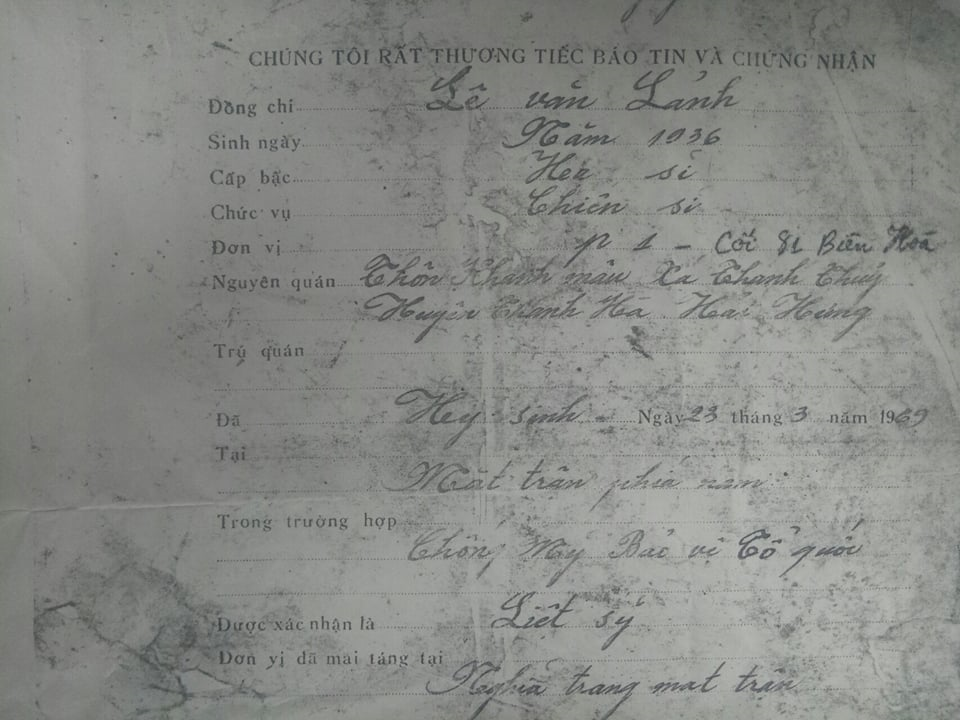 CHÚNG TÔI RẤT THƯƠNG TIẾC BÁO TIN VÀ CHỨNG NHẬN
Đồng chí Lê văn Lảnh
Sinh ngày Năm 1936
Cấp bậc Hạ sĩ
Chức vụ Chiến sĩ
Đơn vị P 1 - Cối 81 Biên Hoà
Nguyên quán Thôn Khánh mậu Xã Thanh Thuỷ
Huyện Thanh Hà Hải Hưng
Trú quán
Đã Hy sinh Ngày 23 tháng 3 năm 1969
Tại
Mặt trận phía nam
Trong trường hợp
Chống Mỹ Bảo vệ Tổ quốc
Được xác nhận là Liệt sỹ
Đơn vị đã mai táng tại
Nghĩa trang mặt trận